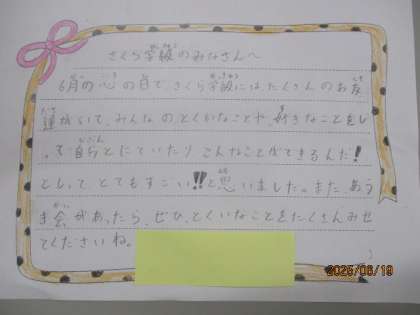 さくら学級のみなさんへ
6月の心の日で、さくら学級にはたくさんのお友
達がいて、みんなのとくいなことや、好きなことをし
って自分とにていたり こんなことができるんだ!
としって とてもすごい!!と思いました。また、あう
き会があったら、ぜひ、とくいなことをたくさんみせ
てくださいね。
2025/06/19